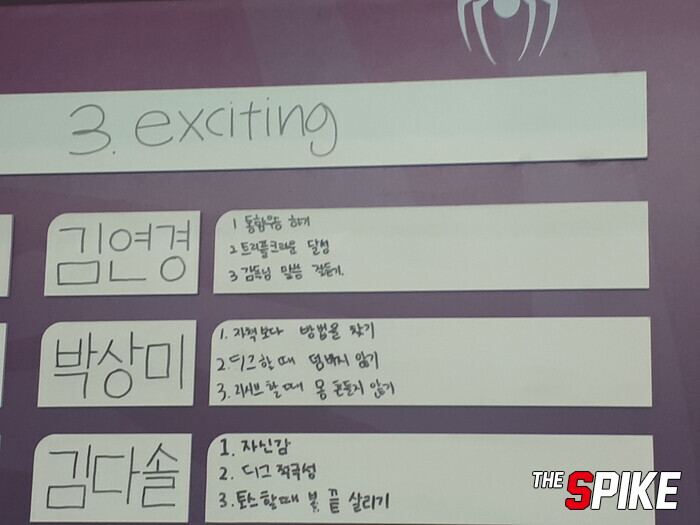 3. exciting
김연경
1 통합우승 하기
2 트리플크라운 달성
3 감독님 말씀 잘듣기.
박상미
1. 자책보다 방법을 찾기
2. 디그할때 덤비지 않기
3. 리시브할때 몸 흔들지 않기
김다솔
1. 자신감
2. 디그 적극성
3. 토스할때 볼 끝 살리기
THE SPIKE